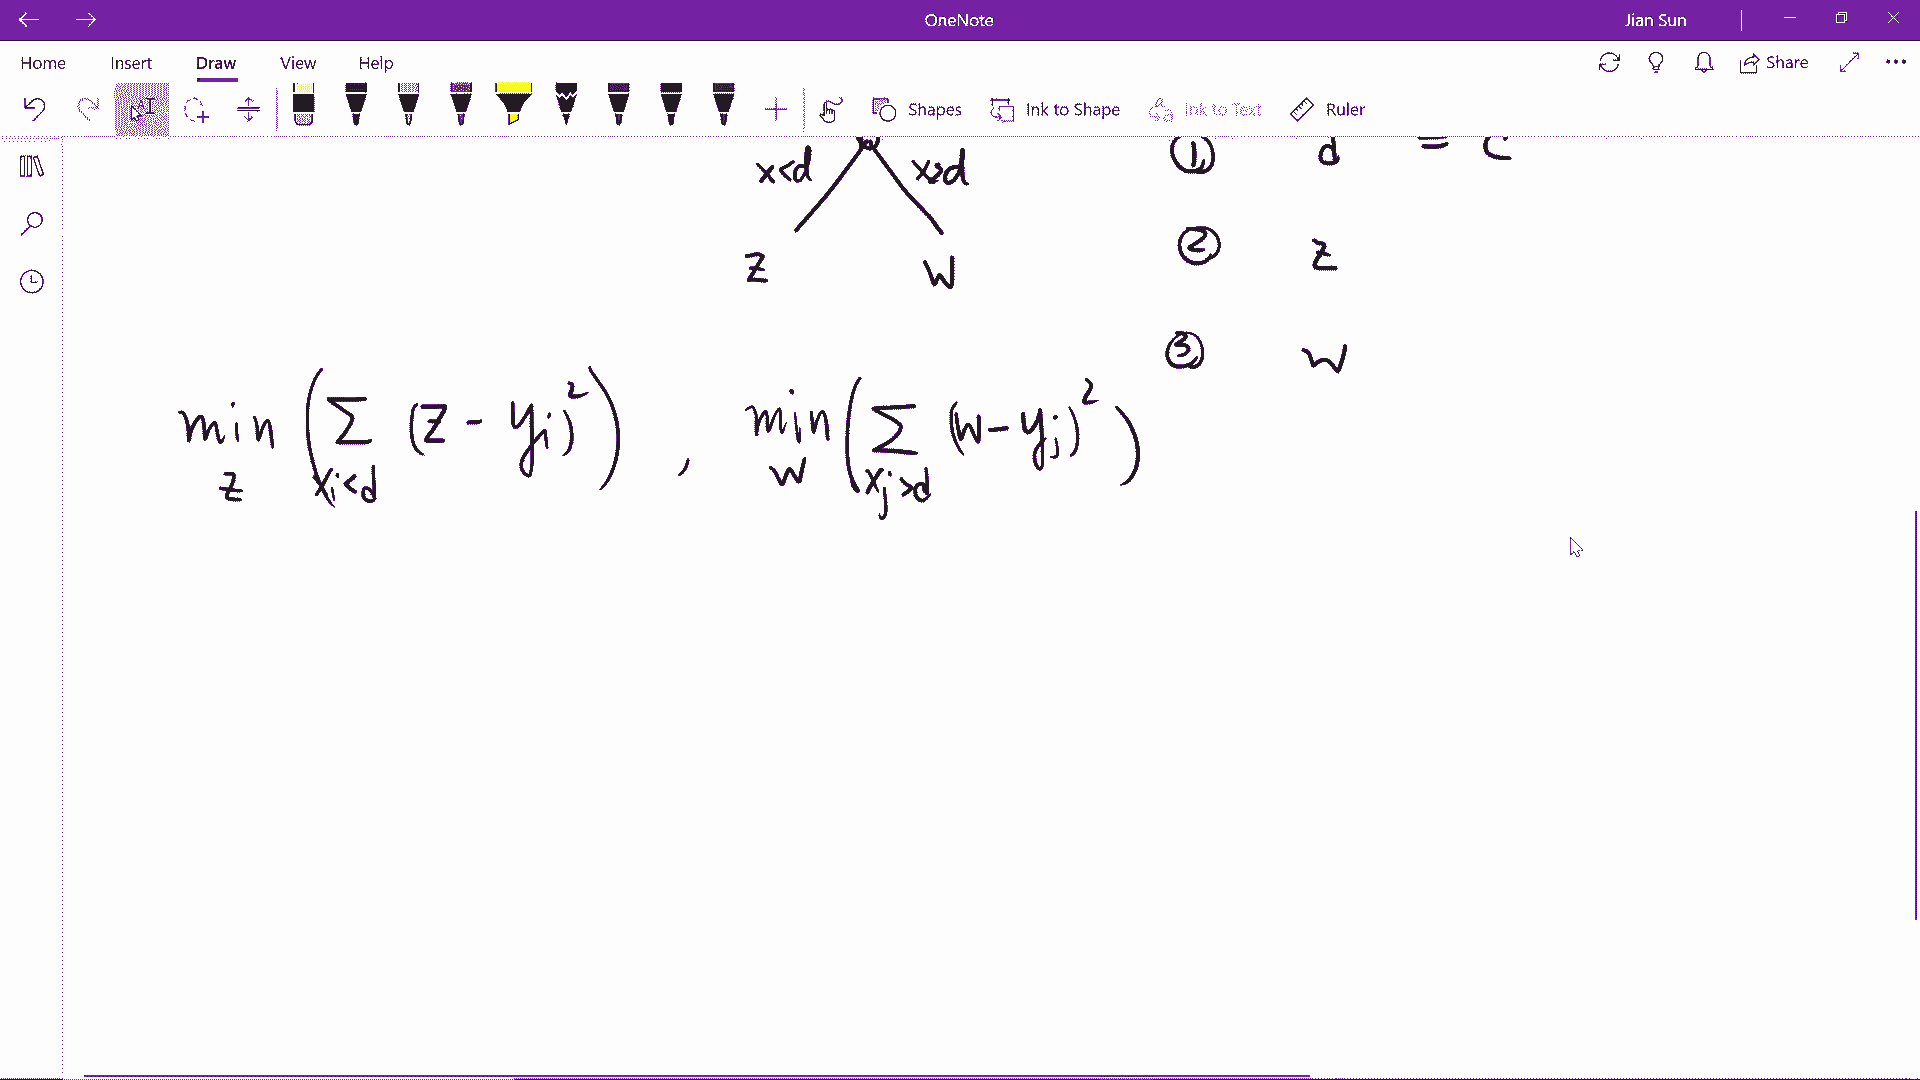 OneNote
Jian Sun
Home Insert Draw View Help
Share
Shapes Ink to Shape Ink to Text Ruler
x<d x>d
① d = c
z w
② z
③ w
min ( Σ (z - yi)² ) , min ( Σ (w - yj)² )
z xi<d w xj>d